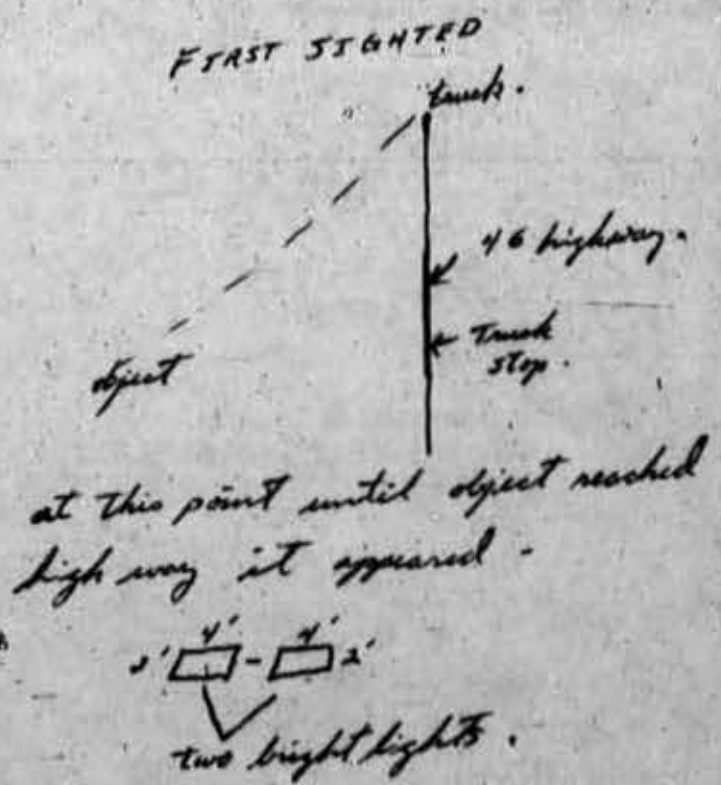 FIRST SIGHTED
truck.
46 highway.
Truck
stop.
object
at this point until object reached
high way it appeared -
4' 4'
2' - 2'
two bright lights.